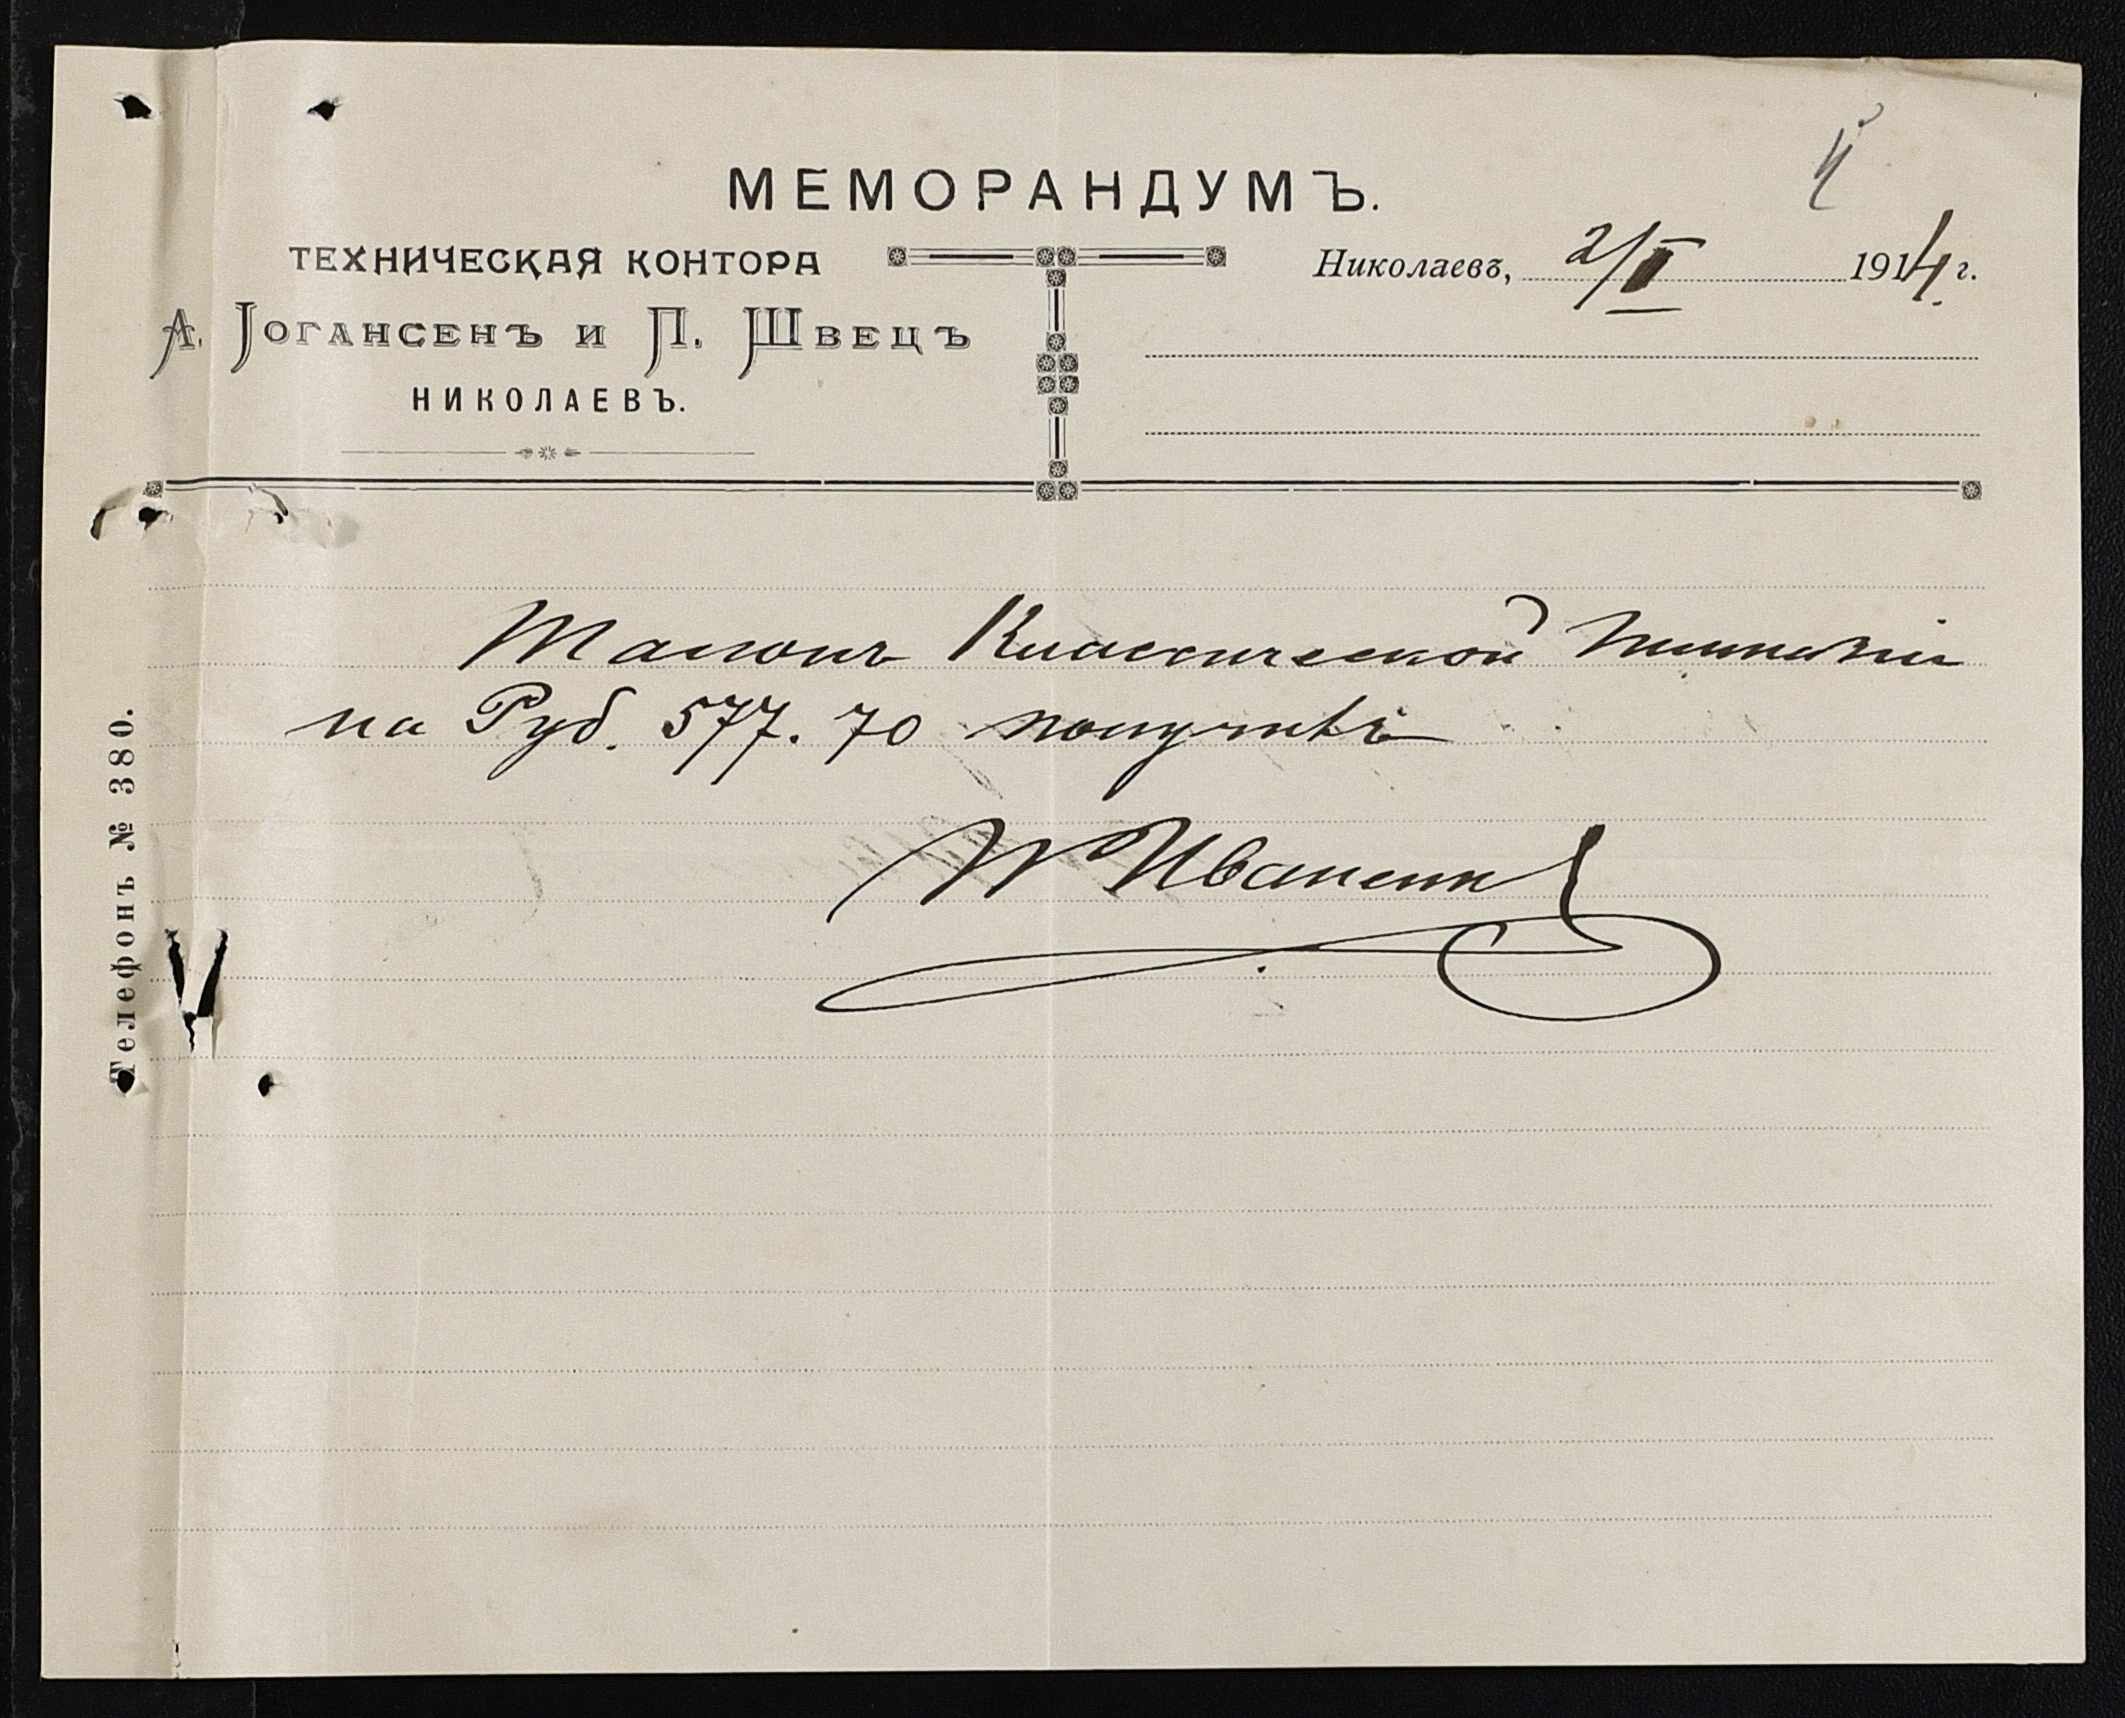 МЕМОРАНДУМЪ.
ТЕХНИЧЕСКАЯ КОНТОРА
А. Іогансенъ и П. Швецъ
НИКОЛАЕВЪ.
Николаевъ, 2/I 1914 г.
Талонъ Классической Гимназіи
на Руб. 577. 70 получилъ
Иваненко
Телефонъ № 380.